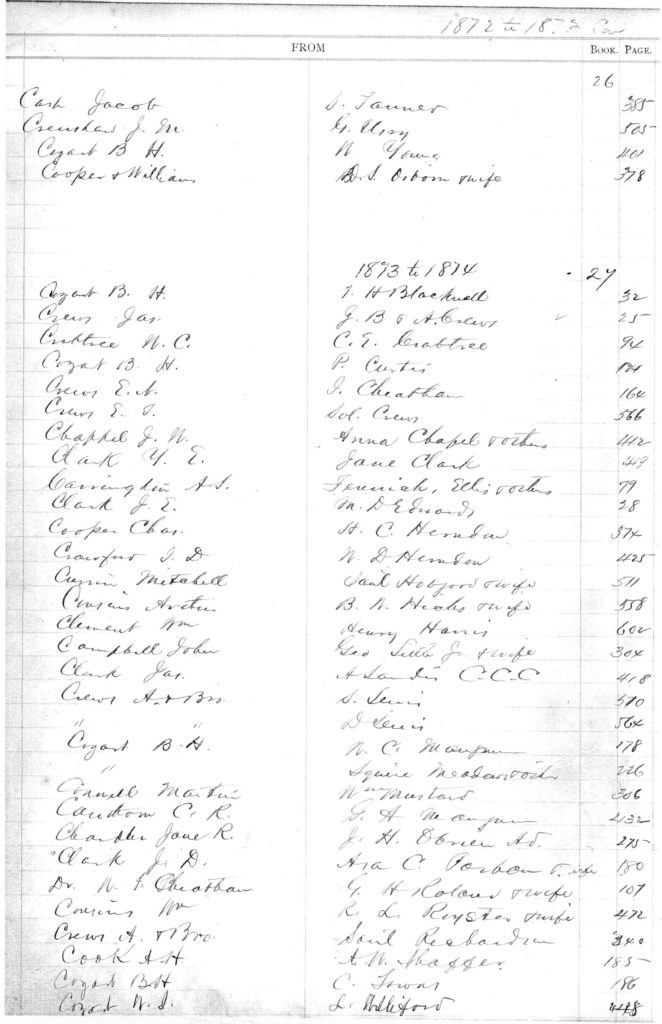 1872 to 18
FROM BOOK. PAGE.
26
Cash Jacob S. Tanner 385
Crenshaw J. M. G. Usry 505
Cozart B H. W Young 401
Cooper & Williams D. S. Osborn & wife 378
1873 to 1874 27
Cozart B. H. H Blacknell 32
Crews Jas. G. B & A. Crews 25
Crabtree W. C. C. E. Crabtree 94
Cozat B. H. P. Curtis 121
Crews E. A. I. Cheatham 164
Crews E. T. Sol. Crews 566
Chappel J. W. Anna Chapel & others 442
Clark Y. E. Jane Clark
Carrington A S. Ellis & others 79
Clark J. E. M. D Edwards 28
Cooper Chas. H. C. Herndon 374
Crawford I. D W. D Herndon 425
Currin Mitchell Saml Hobgood & wife 511
Cousins Arthur B. W. Hicks & wife 558
Clement Wm Henry Harris 602
Campbell John Geo & wife 304
Clark Jas. A Landis C.C.C 418
Crews A. & Bro. S. Lewis 570
" " D Lewis 564
Cozart B. H. W. C. Mangum 178
" Squire Meadows & others 226
Connell Martin Wm Mustard 306
Cawthorn C. R. G. A Mangum 432
Chandler Jane R. J. H. OBrien Ad. 275
Clark J. D. Asa C. & wife 180
Dr. W. T. Cheatham G. H Roland & wife 107
Cousins Wm R. L. Royster & wife 472
Crews A. & Bro. Saml Richardson 340
Cook A H A. W. Shaffer. 185
Cozart B H C. Towns 186
Cozart W. S. L. Williford 448